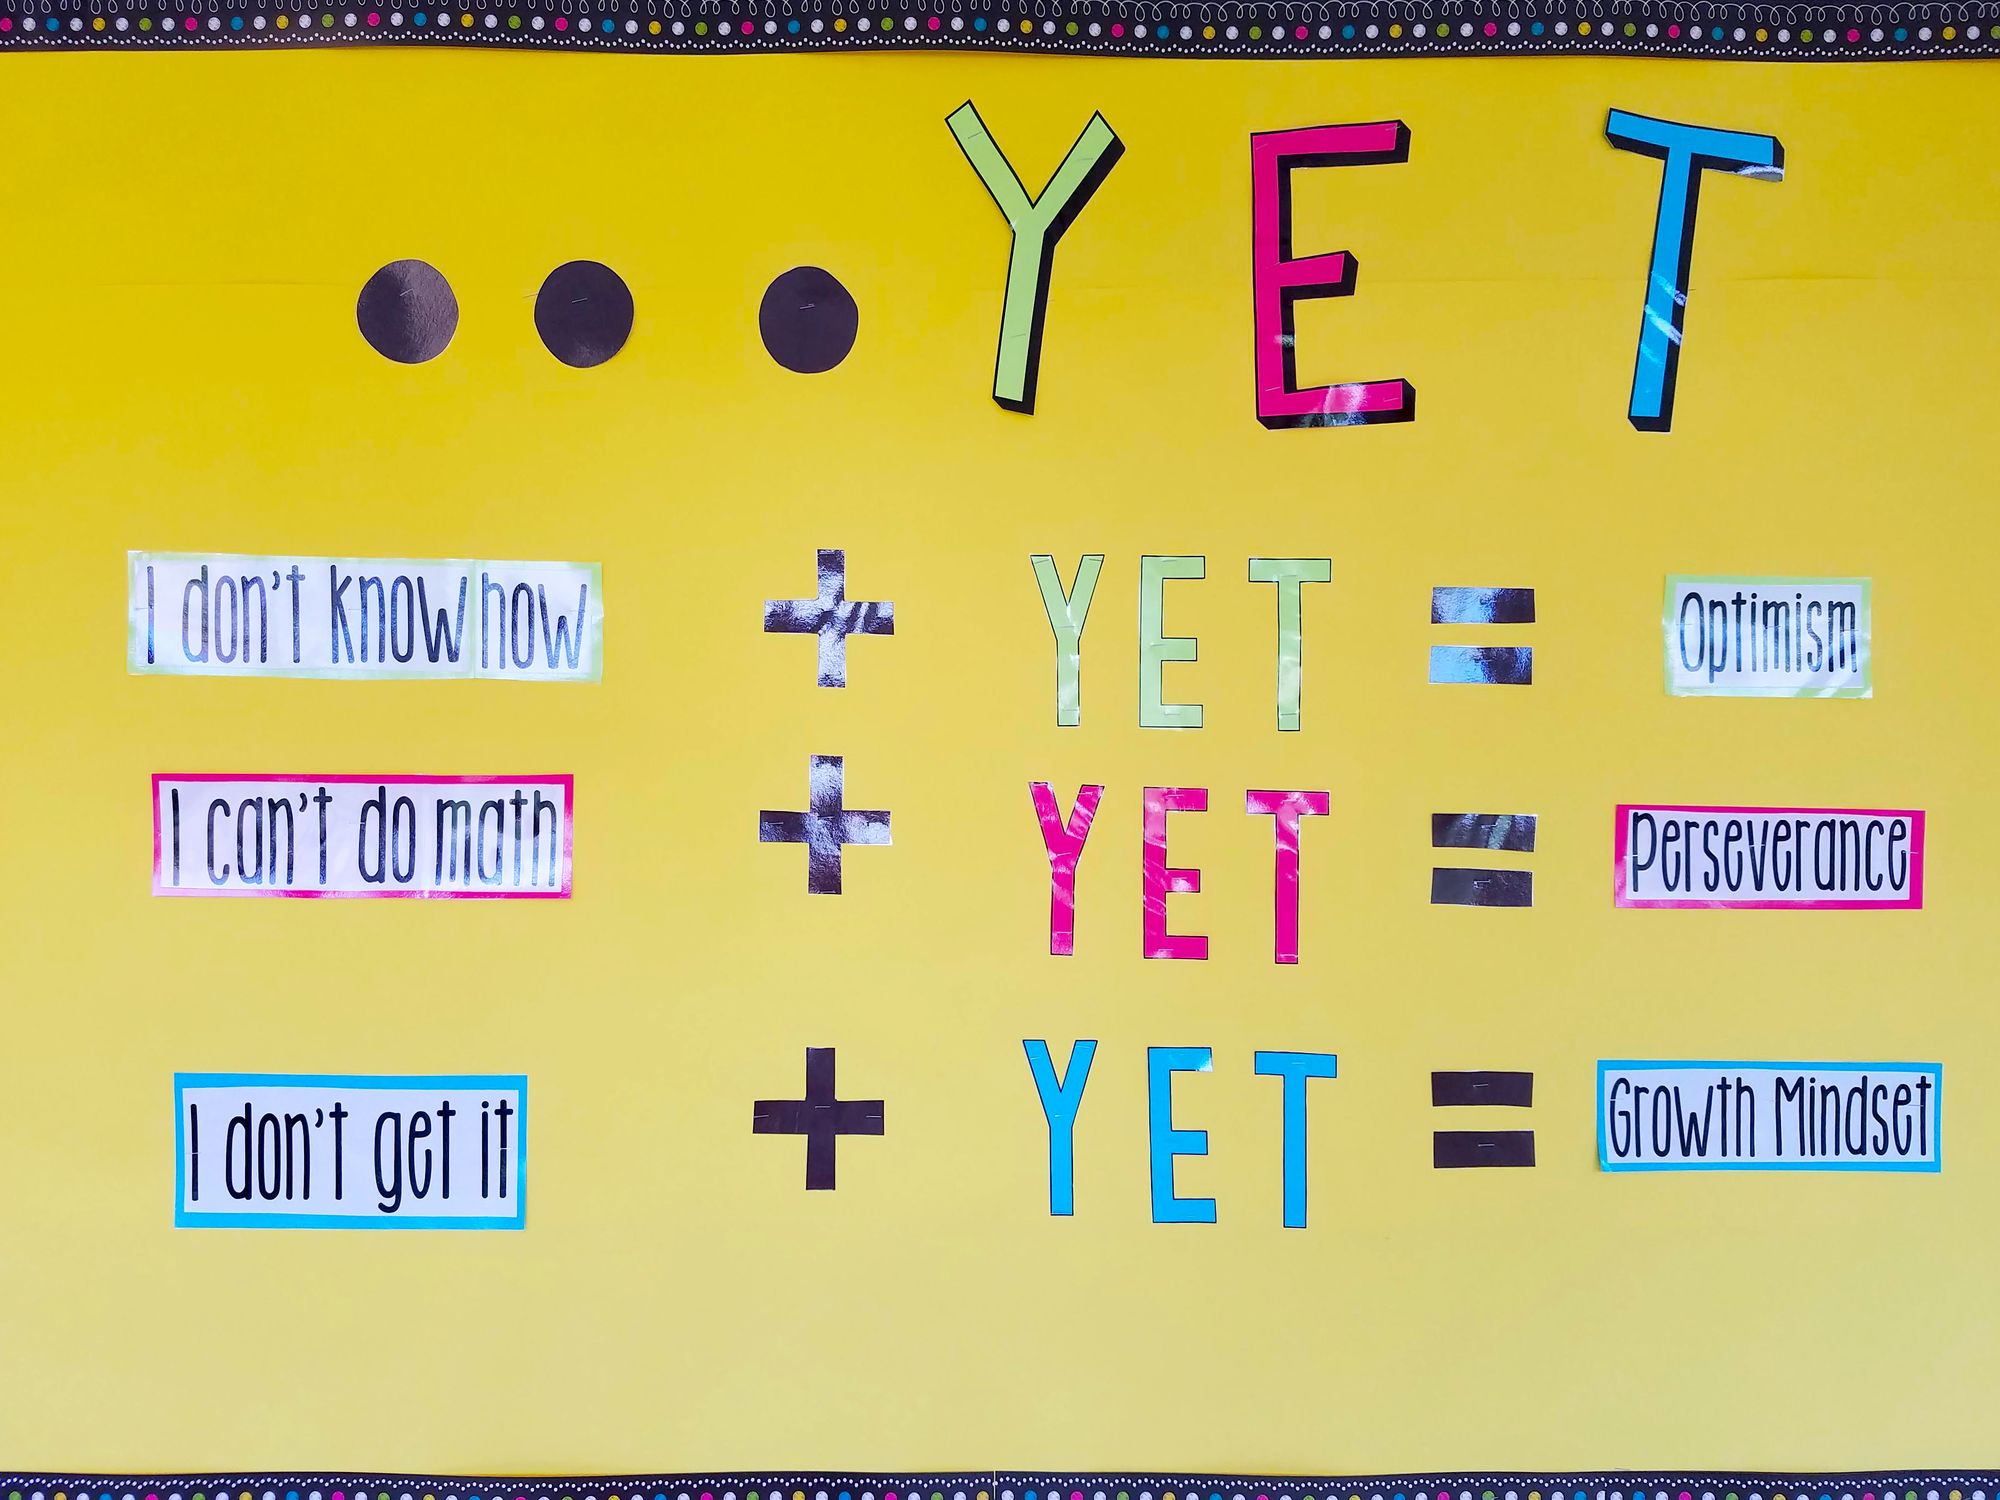 ... YET
I don't know how + YET = Optimism
I can't do math + YET = Perseverance
I don't get it + YET = Growth Mindset